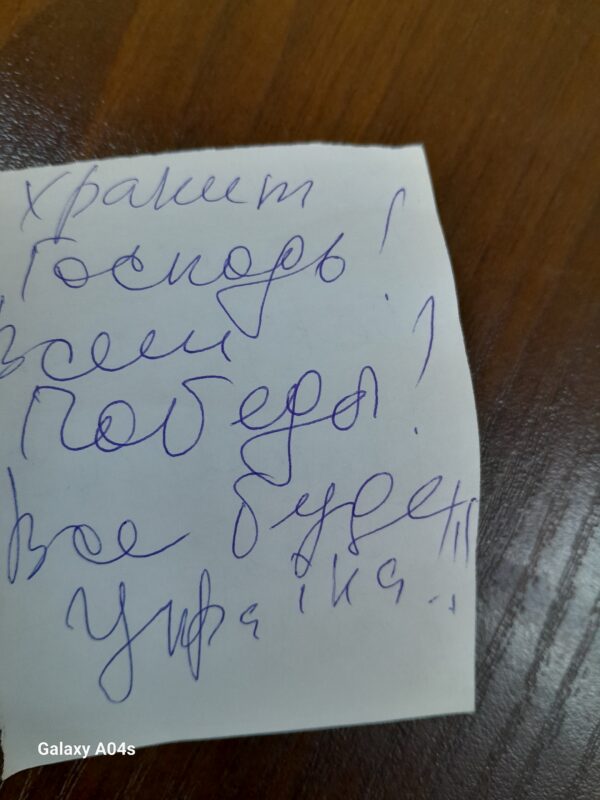 хранит
Господь!
Всем
Победы!
Все буде
Україна!!!
Galaxy A04s